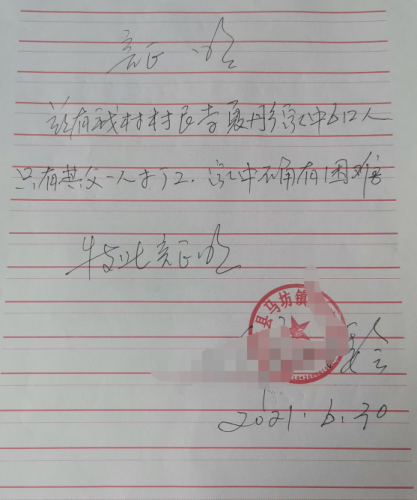 证明
兹有我村村民李夏彤家中6口人
只有其父一人打工.家中确有困难
特此证明
县马坊镇
2021.6.30